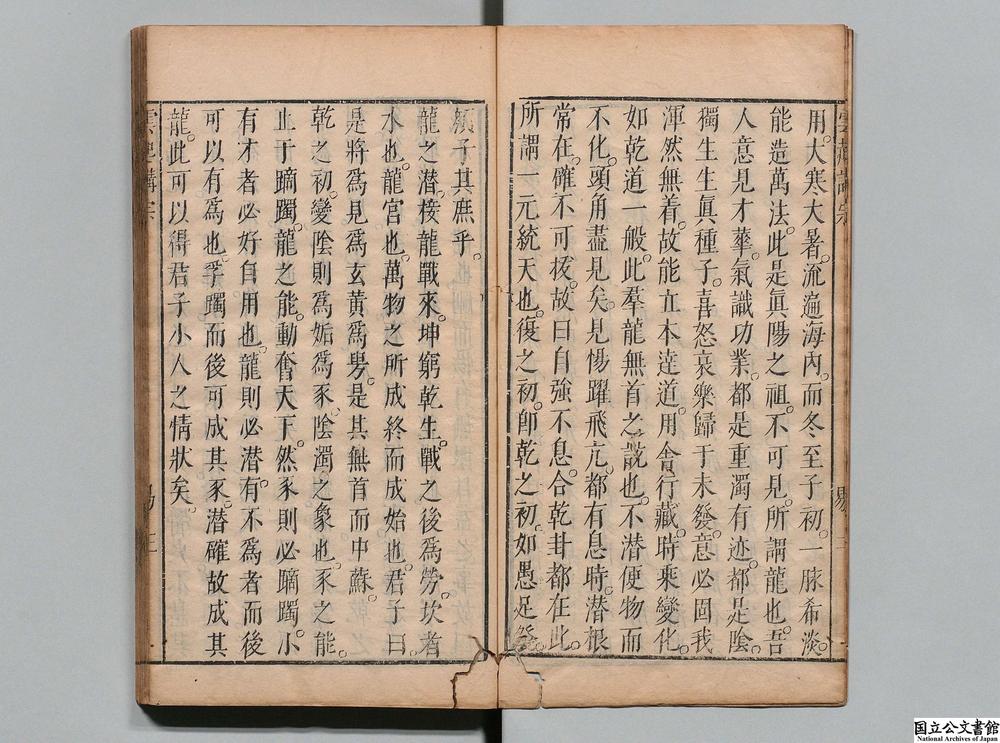 用。大寒大暑。流遍海內。而冬至子初。一脉希淡。
能造萬法。此是眞陽之祖。不可見。所謂龍也。吾
人意見才華。氣識功業。都是重濁有迹。都是陰。
獨生生眞種子。喜怒哀樂歸于未發。意必固我
渾然無着。故能立本達道。用舍行藏。時乘變化。
如乾道一般。此羣龍無首之說也。不潛便物而
不化。頭角盡見矣。見惕躍飛亢。都有息時。潛根
常在。確不可拔。故曰自強不息。合乾卦都在此。
所謂一元統天也。復之初。卽乾之初。如愚足發。
顏子其庶乎。
龍之潛。接龍戰來。坤窮乾生。戰之後爲勞。坎者
水也。龍宮也。萬物之所成終而成始也。君子曰。
是將爲見爲玄黃爲勞。是其無首而中蘇。
乾之初。變陰則爲姤爲豕。陰濁之象也。豕之能。
止于蹢躅。龍之能。動奮天下。然豕則必蹢躅。小
有才者必好自用也。龍則必潛。有不爲者而後
可以有爲也。孚躅而後可成其豕。潛確故成其
龍。此可以得君子小人之情狀矣。
易
国立公文書館
National Archives of Japan